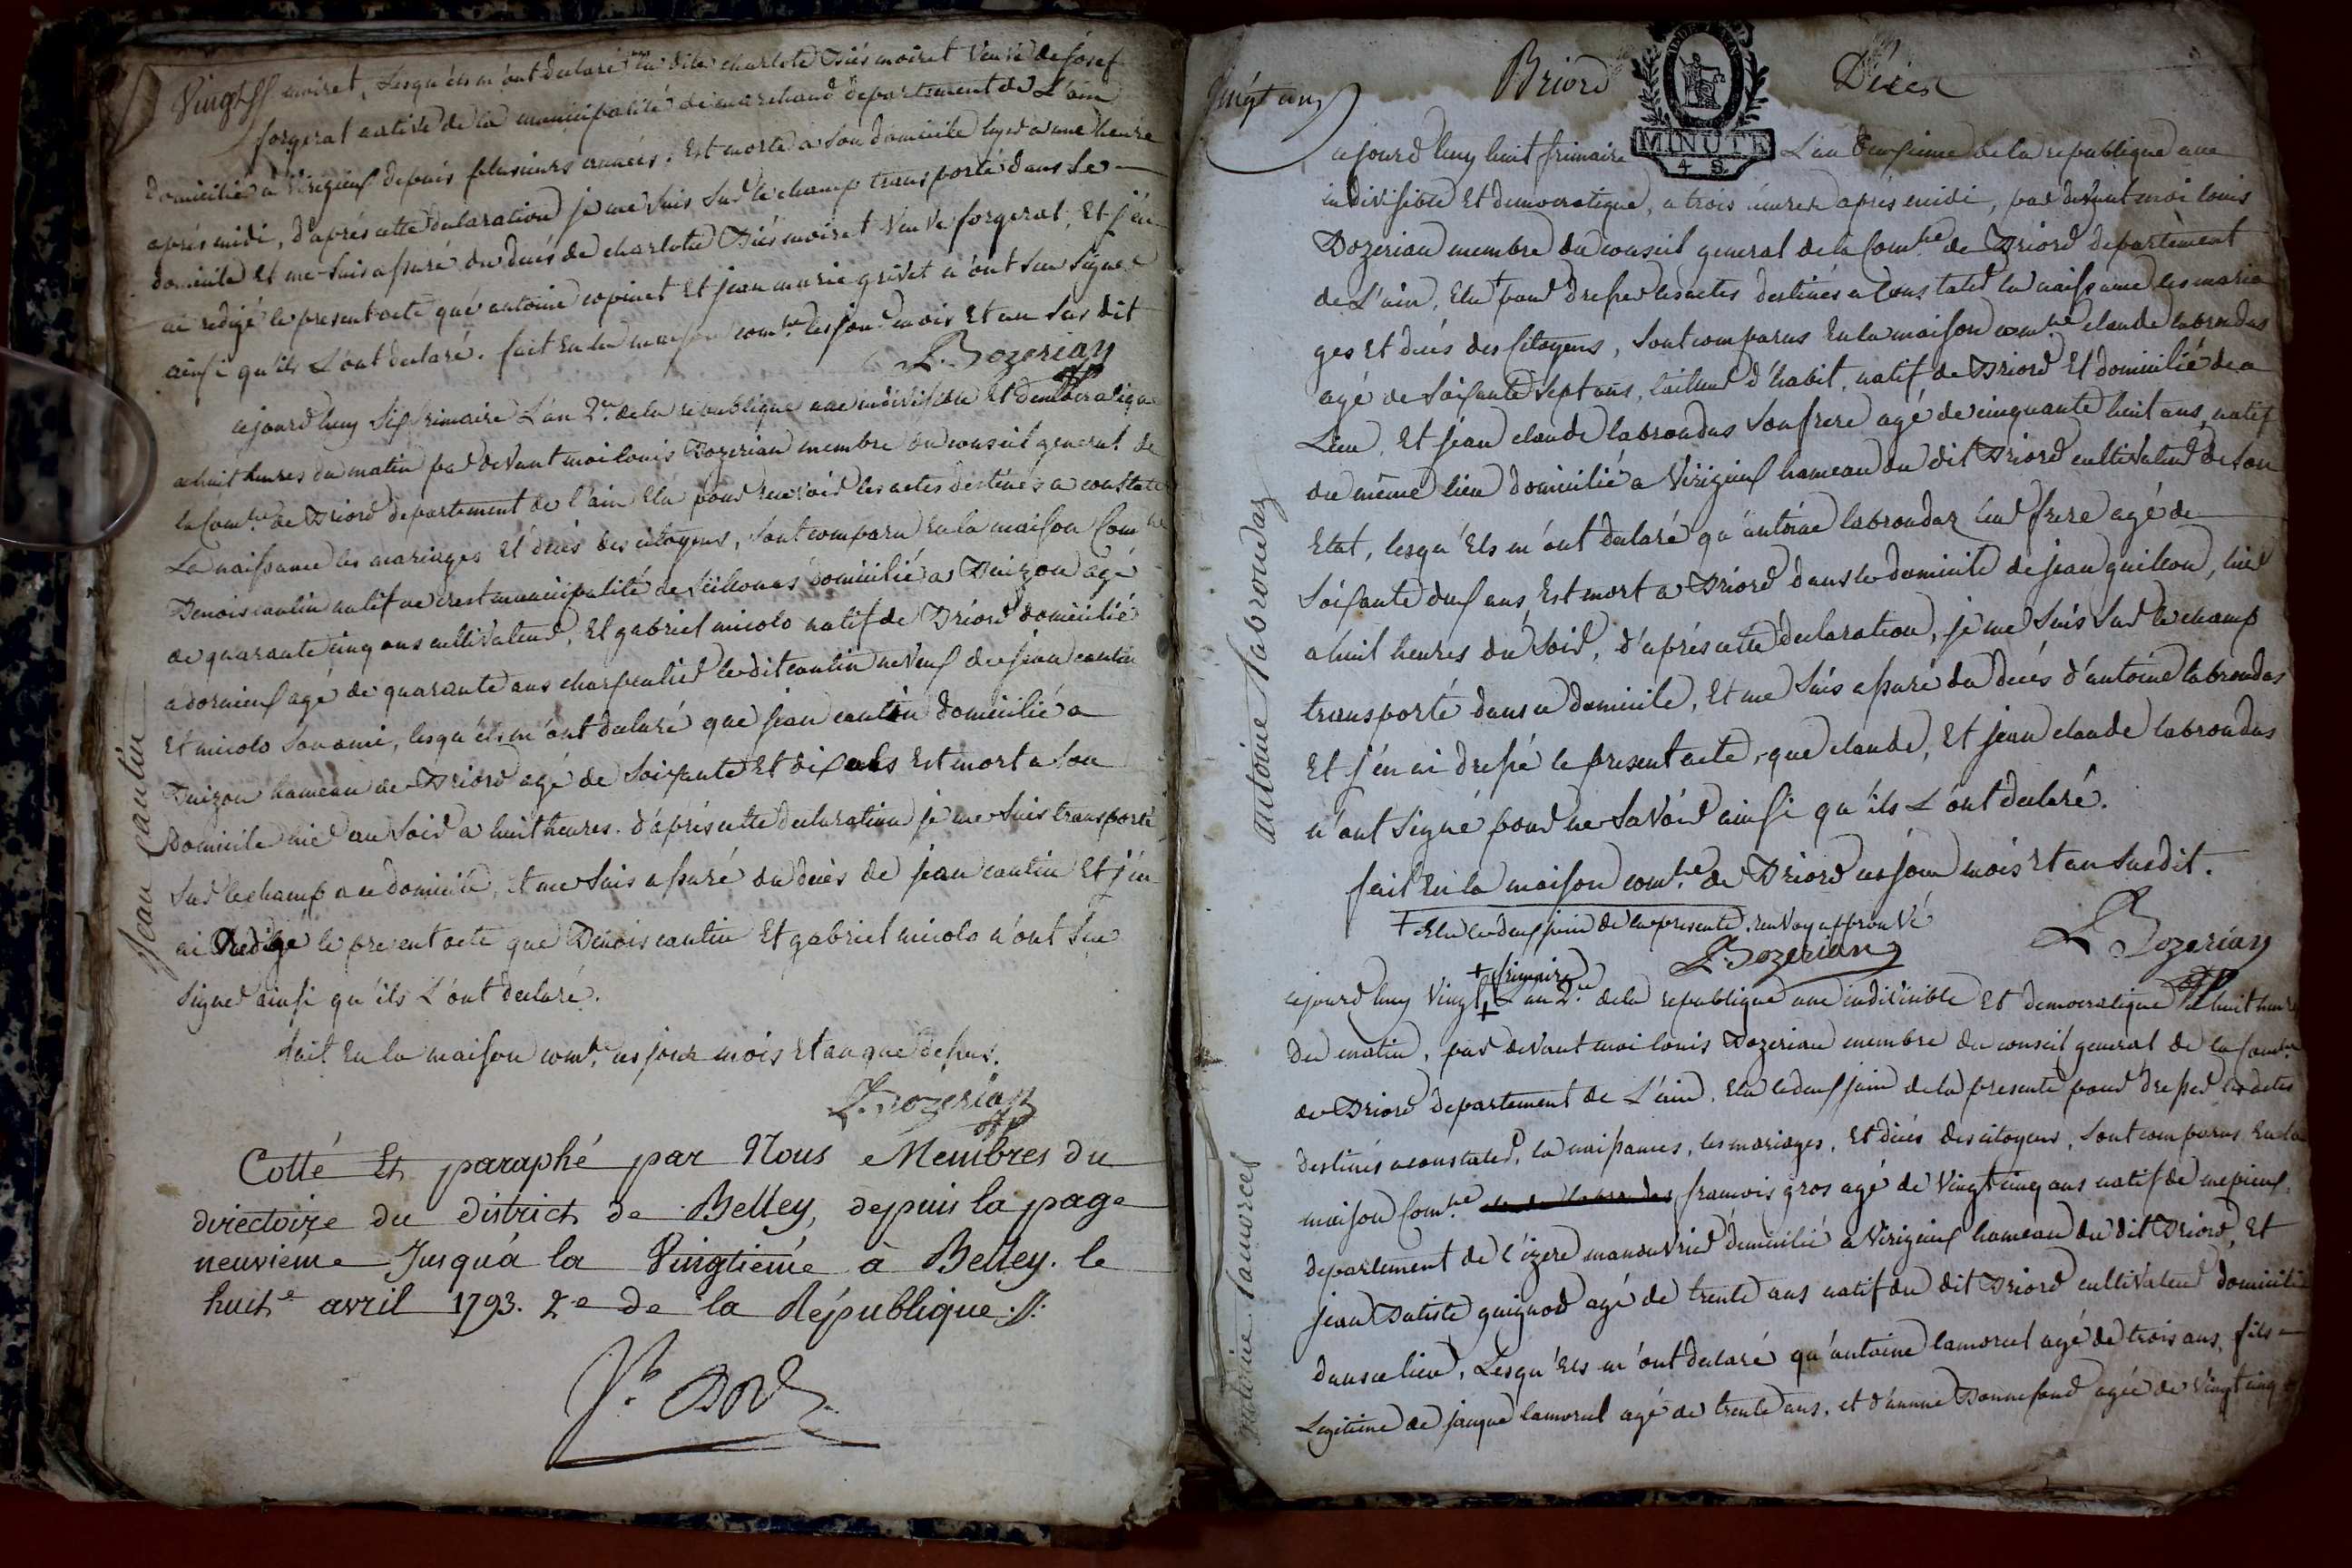 Vingt
moiret, Lesqu'els m'ont declaré la dite charlote Diésmoiret Veuve de Josef
forgerat native de la municipalité de marchand departement de L'ain
domicilié a Virigieuf depuis plusieurs années, Est morte a son domicile hyer a une heure
aprés midi, d'aprés cette declaration je me suis Sur le champ transporté dans Le
domicile et me suis assuré du decés de charlote Diésmoiret Veuve forgerat, Et j'en
ai redigé le present acte que antoine copinet Et jean marie grivet n'ont Seu Signer
ainsi qu'ils L'ont declaré. fait En la maison com.ne les jour mois Et an Sus dit
L. Bozerian
cejourd'huy Six frimaire L'an 2.e de la republique une indivisible Et democratique
a huit heures du matin par devant moi louis Bozerian membre du conseil general de
la Com.ne de Briord departement de l'ain Elu pour recevoir les actes destinés a constater
La naissance les mariages Et decés des citoyens, Sont comparu En la maison Com.ne
Benois cantin natif de municipalité de domicilié a Buizon agé
de quarante cinq ans cultivateur, Et gabriel micolo natif de Briord domicilié
a dornieuf agé de quarante ans charpentier le dit cantin neveuf de jean cantin
Et micolo Son ami, lesqu'els m'ont declaré que jean cantin domicilié a
Buizon hameau de Briord agé de Soixante Et dix ans Est mort a Son
Domicile hier au Soir a huit heures. d'aprés cette declaration je me Suis transporté
Sur le champ a ce domicile, Et me Suis assuré du decés de jean cantin Et j'en
ai Redigé le present acte que Benois cantin Et gabriel micolo n'ont Seu
Signer ainsi qu'ils L'ont declaré.
fait En la maison com.ne ces jour mois Et an que dessus.
L. Bozerian
Jean Cantin
Cotté Et paraphé par Nous Membres du
directoire du district de Belley, depuis la page
neuvieme Jusqu'à la Vingtiéme à Belley. le
huit.e avril 1793. 2.e de la République.
Vingt un
Briord
Décés
MINUTE
4 S.
cejourd'huy huit frimaire L'an deuxieme de la republique une
indivisible Et democratique, a trois heures aprés midi, par devant moi louis
Bozerian membre du conseil general de la Com.ne de Briord departement
de L'ain, Elu + pour dresser les actes destinés a Constater la naissance les maria
ges Et decés des Citoyens, Sont comparus En la maison com.ne claude labroudas
agé de Soixante Sept ans, tailleur d'habit, natif de Briord Et domicilié de ce
Lieu, Et jean claude labroudas Son frere agé de cinquante huit ans, natif
du même lieu domicilié a Virigieuf hameau du dit Briord cultivateur de Son
Etat, lesqu'els m'ont declaré qu'antoine labroudaz leur frere agé de
Soixante deux ans Est mort a Briord dans le domicile de jean guillon, hier
a huit heures du Soir, d'aprés cette declaration, je me Suis Sur le champ
transporté dans ce domicile, Et me Suis assuré du decés d'antoine labroudas
Et j'en ai dressé le present acte, que claude, Et jean claude labroudas
n'ont Signé pour ne Savoir ainsi qu'ils L'ont declaré.
fait En la maison com.ne de Briord ces jour mois Et an Susdit.
+ Elu le deux juin de la presente, renvoy approuvé
L. Bozerian
L. Bozerian
antoine Labroudaz
+ frimaire
cejourd'huy Vingt + L'an 2.e de la republique une indivisible Et democratique a huit heures
du matin, par devant moi louis Bozerian membre du conseil general de la Com.ne
de Briord departement de L'ain, Elu le deux juin de la presente pour dresser les actes
destinés a constater, la naissance, les mariages, Et decés des citoyens, Sont comparus En la
maison Com.ne francois gros agé de Vingt cinq ans natif de mepieuf,
departement de l'izere manouvrier domicilié a Virigieuf hameau du dit Briord, Et
jean Batiste guignod agé de trente ans natif du dit Briord cultivateur domicilié
dans ce lieu, Lesqu'els m'ont declaré qu'antoine lamorcel agé de trois ans, fils
Legitime de jacque lamorcel agé de trente ans, et d'anne Bonnefand agée de Vingt cinq
antoine Lamorcel